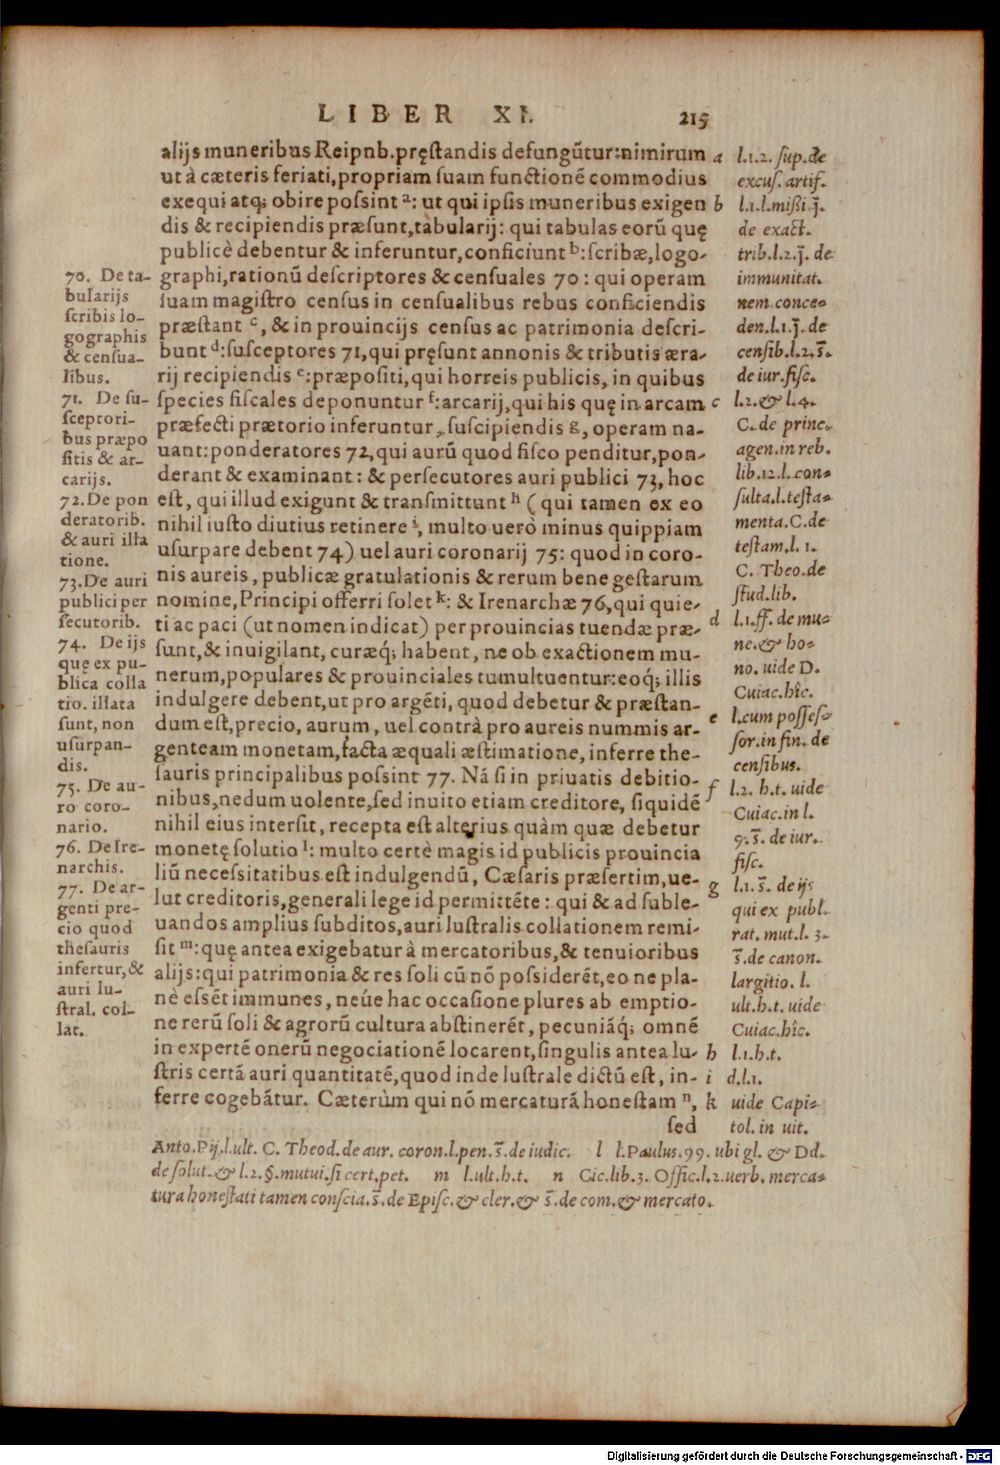 LIBER XI. 215
alijs muneribus Reipnb. pręſtandis defungūtur: nimirum
ut à cæteris feriati, propriam ſuam functionē commodius
exequi atq; obire poſsint a: ut qui ipſis muneribus exigen
dis & recipiendis præſunt, tabularij: qui tabulas eorū quę
publicè debentur & inferuntur, conficiunt b: ſcribæ, logo-
graphi, rationū deſcriptores & cenſuales 70: qui operam
ſuam magiſtro cenſus in cenſualibus rebus conficiendis
præſtant c, & in prouincijs cenſus ac patrimonia deſcri-
bunt d: ſuſceptores 71, qui pręſunt annonis & tributis æra-
rij recipiendis e: præpoſiti, qui horreis publicis, in quibus
ſpecies fiſcales deponuntur f: arcarij, qui his quę in arcam
præfecti prætorio inferuntur, ſuſcipiendis g, operam na-
uant: ponderatores 72, qui aurū quod fiſco penditur, pon-
derant & examinant: & perſecutores auri publici 73, hoc
eſt, qui illud exigunt & tranſmittunt h ( qui tamen ex eo
nihil iuſto diutius retinere i, multo uerò minus quippiam
uſurpare debent 74) uel auri coronarij 75: quod in coro-
nis aureis, publicæ gratulationis & rerum bene geſtarum
nomine, Principi offerri ſolet k: & Irenarchæ 76, qui quie-
ti ac paci (ut nomen indicat) per prouincias tuendæ præ-
ſunt, & inuigilant, curæq; habent, ne ob exactionem mu-
nerum, populares & prouinciales tumultuentur: eoq; illis
indulgere debent, ut pro argēti, quod debetur & præſtan-
dum eſt, precio, aurum, uel contrà pro aureis nummis ar-
genteam monetam, facta æquali æſtimatione, inferre the-
ſauris principalibus poſsint 77. Nā ſi in priuatis debitio-
nibus, nedum uolente, ſed inuito etiam creditore, ſiquidē
nihil eius interſit, recepta eſt alterius quàm quæ debetur
monetę ſolutio l: multo certè magis id publicis prouincia
liū neceſsitatibus eſt indulgendū, Cæſaris præſertim, ue-
lut creditoris, generali lege id permittēte: qui & ad ſuble-
uandos amplius ſubditos, auri luſtralis collationem remi-
ſit m: quę antea exigebatur à mercatoribus, & tenuioribus
alijs: qui patrimonia & res ſoli cū nō poſsiderēt, eo ne pla-
nè eſsēt immunes, neúe hac occaſione plures ab emptio-
ne rerū ſoli & agrorū cultura abſtinerēt, pecuniáq; omnē
in expertē onerū negociationē locarent, ſingulis antea lu-
ſtris certā auri quantitatē, quod inde luſtrale dictū eſt, in-
ferre cogebātur. Cæterùm qui nō mercaturā honeſtam n,
ſed
70. De ta-
bularijs
ſcribis lo-
gographis
& cenſua-
libus.
71. De ſu-
ſceptori-
bus præpo
ſitis & ar-
carijs.
72. De pon
deratorib.
& auri illa
tione.
73. De auri
publici per
ſecutorib.
74. De ijs
quę ex pu-
blica colla
tio. illata
ſunt, non
uſurpan-
dis.
75. De au-
ro coro-
nario.
76. De Ire-
narchis.
77. De ar-
genti pre-
cio quod
theſauris
infertur, &
auri lu-
ſtral. col-
lat.
a l.1.2. ſup. de
excuſ. artif.
b l.1.l. miſsi j̄.
de exact.
trib.l.2.j̄. de
immunitat.
nem conce-
den.l.1.j̄. de
cenſib.l.2.s̄.
de iur. fiſc.
c l.2.& l.4.
C. de princ.
agen. in reb.
lib.12.l. con-
ſulta.l. teſta-
menta. C. de
teſtam.l. 1.
C. Theo. de
ſtud. lib.
d l.1.ff. de mu-
ne. & ho-
no. uide D.
Cuiac. hîc.
e l. cum poſſeſ-
ſor. in fin. de
cenſibus.
f l.2. h.t. uide
Cuiac. in l.
9.s̄. de iur.
fiſc.
g l.1.s̄. de ijs
qui ex publ.
rat. mut. l. 3.
s̄. de canon.
largitio. l.
ult. h.t. uide
Cuiac. hîc.
h l.1.h.t.
i d.l.1.
k uide Capi-
tol. in uit.
Anto. Pij. l. ult. C. Theod. de aur. coron. l. pen. s̄. de iudic. l l. Paulus. 99. ubi gl. & Dd.
de ſolut. & l.2. §. mutui. ſi cert. pet. m l. ult. h.t. n Cic. lib. 3. Offic. l. 2. uerb. merca-
tura honeſtati tamen conſcia. s̄. de Epiſc. & cler. & s̄. de com. & mercato.
Digitalisierung gefördert durch die Deutsche Forschungsgemeinschaft - DFG